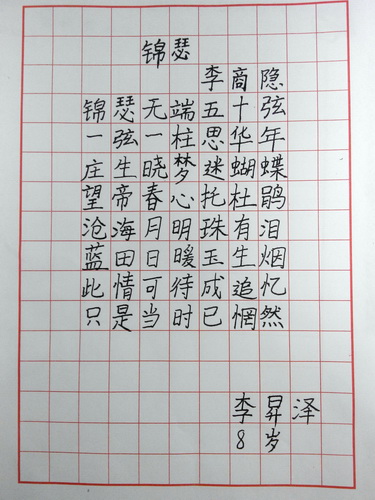 锦瑟
李商隐
锦瑟无端五十弦
一弦一柱思华年
庄生晓梦迷蝴蝶
望帝春心托杜鹃
沧海月明珠有泪
蓝田日暖玉生烟
此情可待成追忆
只是当时已惘然
李昇泽
8岁